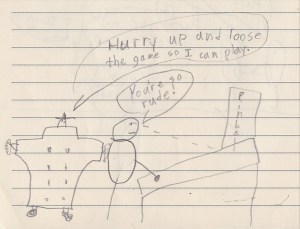 Hurry up and loose
the game so I can play.
You're so
rude!
Pinball